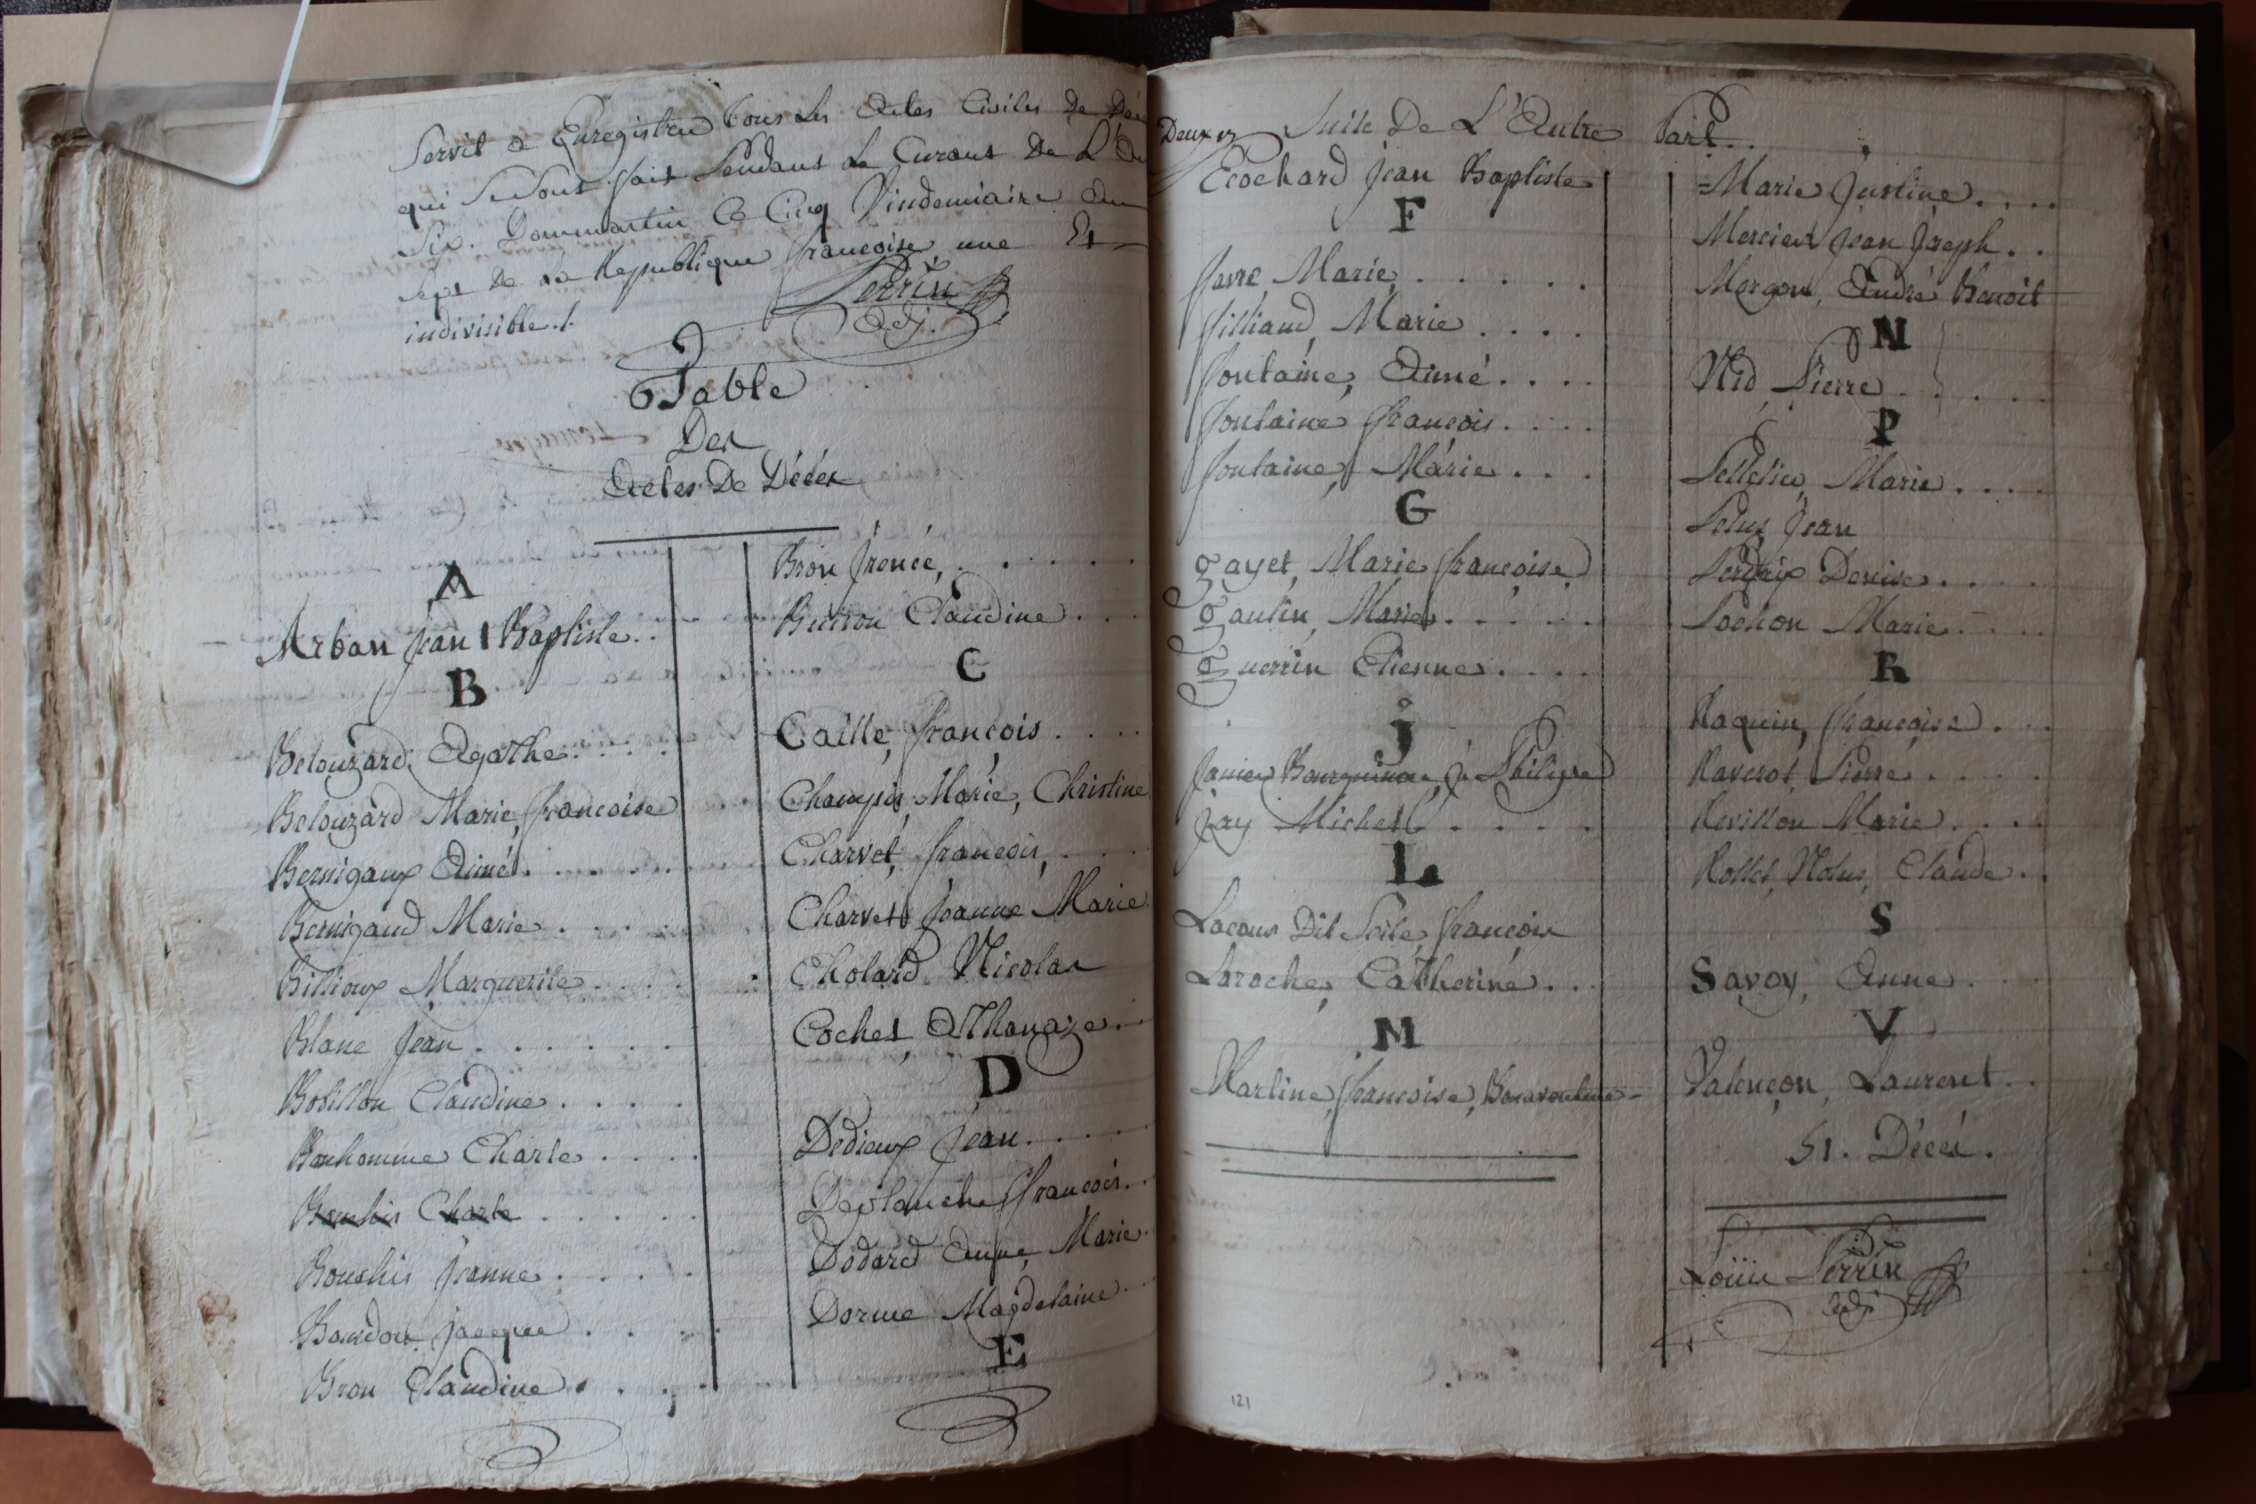 Servit à Enregistrer tous Les Actes Civiles de
qui se sont fait Pendant Le Curant De L'
Six. Dommartin Ce Cinq Vindemiaire An
Sept de la Republique francoise une Et
indivisible ./.
Perrin
Adj.
Table
Des
Actes De Décés
A
Arban Jean Baptiste..
B
Belouzard, Agathe....
Belouzard Marie, francoise
Bernigaux Aimé......
Bernigaud Marie.....
Billioux Marguerite....
Blanc Jean......
Bobillon Claudine....
Bonhomme Charle....
Bouchis Charle.....
Bouchis Jeanne....
Bourdon Jacque....
Bron Claudine....
Bron Irenée,......
Buiron Claudine...
C
Caille, françois....
Champis, Marie, Christine
Charvet, françois,...
Charvet Jeanne Marie
Cholard Nicolas
Cochet Athanaze..
D
Dedieux Jean.....
Deplanche francois..
Dodard Anne, Marie.
Dorme Magdelaine.
E
Deux 17 Suite De L'Autre Part..
Ecochard Jean Baptiste
F
favre Marie,.....
filliaud, Marie....
fontaine, Aimé....
fontaine françois....
fontaine, Marie...
G
gayet, Marie françoise
gautin, Marie.....
guerrin Etienne....
J
Janier Philipe
Jay Michel.....
L
Lacour Dit françois
Laroche, Catherine...
M
Martine, francoise, Bonaventure
Marie Justine....
Mercier Jean Joseph..
Morgon, André Benoit
N
Nid Pierre.....
P
Pelletier, Marie....
Petus Jean
Denise....
Pochon Marie....
R
Raquin, françoise...
Raverot, Pierre....
Revillon Marie....
Rollet, Claude..
S
Savoy, Anne...
V
Valençon, Laurent..
51. Décés.
Louis Perrin
adj.
121